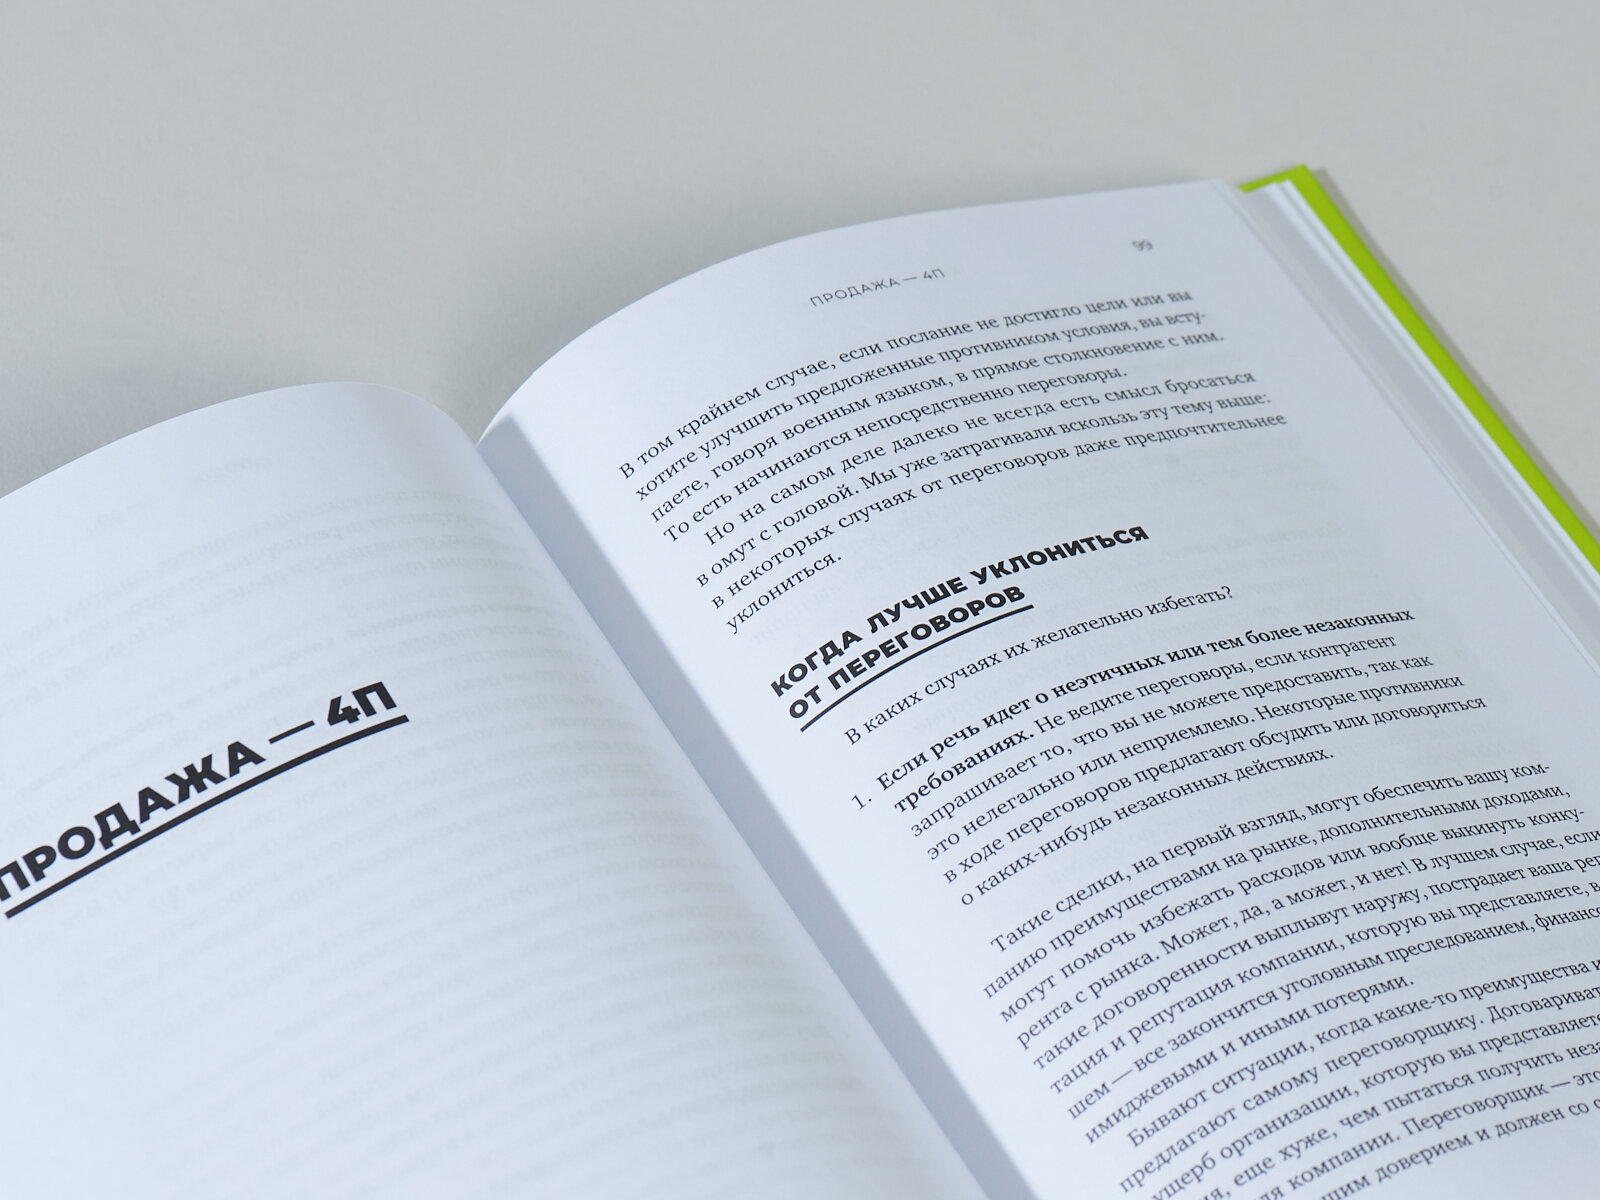 ПРОДАЖА — 4П
ПРОДАЖА — 4П
99
В том крайнем случае, если послание не достигло цели или вы
хотите улучшить предложенные противником условия, вы всту-
паете, говоря военным языком, в прямое столкновение с ним.
То есть начинаются непосредственно переговоры.
Но на самом деле далеко не всегда есть смысл бросаться
в омут с головой. Мы уже затрагивали вскользь эту тему выше:
в некоторых случаях от переговоров даже предпочтительнее
уклониться.
КОГДА ЛУЧШЕ УКЛОНИТЬСЯ
ОТ ПЕРЕГОВОРОВ
В каких случаях их желательно избегать?
1. Если речь идет о неэтичных или тем более незаконных
требованиях. Не ведите переговоры, если контрагент
запрашивает то, что вы не можете предоставить, так как
это нелегально или неприемлемо. Некоторые противники
в ходе переговоров предлагают обсудить или договориться
о каких-нибудь незаконных действиях.
Такие сделки, на первый взгляд, могут обеспечить вашу ком-
панию преимуществами на рынке, дополнительными доходами,
могут помочь избежать расходов или вообще выкинуть конку-
рента с рынка. Может, да, а может, и нет! В лучшем случае, если
такие договоренности выплывут наружу, пострадает ваша реп
тация и репутация компании, которую вы представляете, в
шем — все закончится уголовным преследованием, финансо
имиджевыми и иными потерями.
Бывают ситуации, когда какие-то преимущества и
предлагают самому переговорщику. Договариват
ущерб организации, которую вы представляете
ия, еще хуже, чем пытаться получить неза
ля компании. Переговорщик — это
шим доверием и должен со с